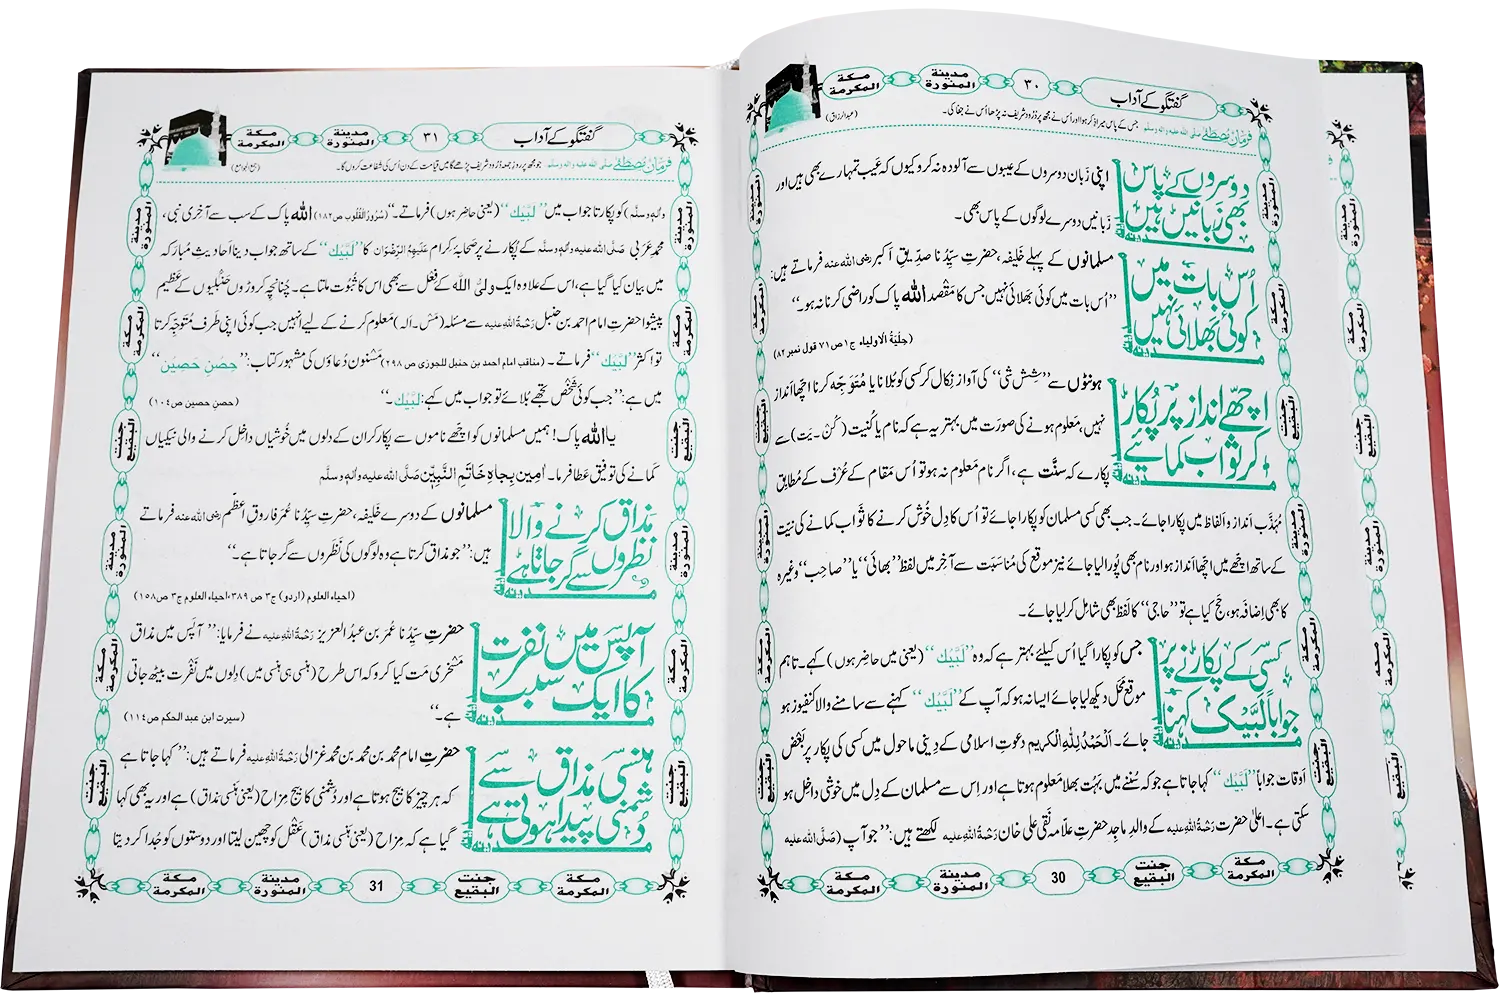 گفتگو کے آداب
۳۰
مدينة المنورة
مكة المكرمة
فرمانِ مصطفےٰ صلی اللہ علیہ والہ وسلم جس کے پاس میرا ذکر ہوا اور اُس نے مجھ پر دُرُود شریف نہ پڑھا اُس نے جفا کی۔ (عبدالرزاق)
دوسروں کے پاس
بھی زبانیں ہیں
اپنی زَبان دوسروں کے عیبوں سے آلودہ نہ کرو کیوں کہ عَیب تمہارے بھی ہیں اور
زَبانیں دوسرے لوگوں کے پاس بھی۔
اُس بات میں
کوئی بھلائی نہیں
مسلمانوں کے پہلے خلیفہ، حضرتِ سیِّدُنا صدِیقِ اکبر رضی اللہ عنہ فرماتے ہیں:
”اُس بات میں کوئی بَھلائی نہیں، جس کا مَقْصد اللہ پاک کو راضی کرنا نہ ہو۔“
(حِلْیَۃُ الْاَولیاء ج۱ ص۷۱ قول نمبر۸۲)
اچھے انداز پر پُکار
کر ثواب کمائیے
ہونٹوں سے ”شِش شی“ کی آواز نِکال کر کسی کو بُلانا یا مُتَوَجِّہ کرنا اچھا انداز
نہیں، معلوم ہونے کی صورَت میں بہتر یہ ہے کہ نام یا کُنیت (کُنْ۔یَت) سے
پکارے کہ سنَّت ہے، اگر نام معلوم نہ ہو تو اُس مَقام کے عُرْف کے مُطابِق
مُہَذَّب انداز و اَلفاظ میں پکارا جائے۔ جب بھی کسی مسلمان کو پکارا جائے تو اُس کا دِل خُوش کرنے کا ثواب کمانے کی نِیَّت
کے ساتھ اچھے میں اچھا انداز ہو اور نام بھی پُورا لیا جائے نیز موقع کی مُناسَبَت سے آخر میں لفظ ”بھائی“ یا ”صاحِب“ وغیرہ
کا بھی اِضافہ ہو، حج کیا ہے تو ”حاجی“ کا لَفظ بھی شامِل کر لیا جائے۔
کسی کے پکارنے پر
جواباً لَبَّیْک کہنا
جس کو پکارا گیا اُس کیلئے بہتر ہے کہ وہ ”لَبَّیْک“ (یعنی میں حاضِر ہوں) کہے۔ تاہم
موقع محَل دیکھ لیا جائے ایسا نہ ہو کہ آپ کے ”لَبَّیْک“ کہنے سے سامنے والا کنفیوز ہو
جائے۔ اَلْحَمْدُلِلّٰہِ الْکَرِیْم دعوتِ اسلامی کے دِینی ماحول میں کسی کی پکار پر بَعْض
اَوقات جواباً ”لَبَّیْک“ کہا جاتا ہے جو کہ سُننے میں بَہُت بھلا مَعلوم ہوتا ہے اور اِس سے مسلمان کے دِل میں خوشی داخِل ہو
سکتی ہے۔ اعلیٰ حضرت رَحْمَۃُ اللہِ علیہ کے والدِ ماجِد حضرتِ علّامہ نَقی علی خان رَحْمَۃُ اللہِ علیہ لکھتے ہیں: ”جو آپ (صَلَّی اللہُ علیہ
مكة المكرمة
مدينة المنورة
30
جنت البقيع
مكة المكرمة
گفتگو کے آداب
۳۱
مدينة المنورة
مكة المكرمة
فرمانِ مصطفےٰ صلی اللہ علیہ والہ وسلم جو مجھ پر روزِ جمعہ دُرُود شریف پڑھے گا میں قِیامت کے دن اُس کی شَفاعت کروں گا۔ (جمع الجوامع)
واٰلہٖ وسلَّم) کو پکارتا جواب میں ”لَبَّیْک“ (یعنی حاضِر ہوں) فرماتے۔“ (سُرُورُ الْقُلُوب ص۱۸۲) اللہ پاک کے سب سے آخری نبی،
محمدِ عَرَبی صَلَّی اللہُ علیہ واٰلہٖ وسلَّم کے پُکارنے پر صَحابۂ کرام عَلَیْہِمُ الرِّضْوَان کا ”لَبَّیْک“ کے ساتھ جواب دینا اَحادیثِ مُبارَکہ
میں بیان کیا گیا ہے، اس کے علاوہ ایک ولیُّ اللہ کے فِعْل سے بھی اس کا ثُبُوت ملتا ہے۔ چُنانچِہ کروڑوں حَنبلیوں کے عَظیم
پیشوا حضرتِ امام احمد بن حنبل رَحْمَۃُ اللہِ علیہ سے مسئلہ (مَسْ۔اَلہ) معلوم کرنے کے لیے انہیں جب کوئی اپنی طَرَف مُتَوَجِّہ کرتا
تو اکثر ”لَبَّیْک“ فرماتے۔ (مناقب امام احمد بن حنبل للجوزی ص۲۹۸) مَسْنون دُعاؤں کی مشہور کتاب: ”حِصْنِ حَصِیْن“
میں ہے: ”جب کوئی شَخْص تجھے بُلائے تو جواب میں کہے: لَبَّیْک۔“ (حصن حصین ص۱۰۴)
یا اللہ پاک! ہمیں مسلمانوں کو اچّھے ناموں سے پکار کر ان کے دلوں میں خُوشیاں داخِل کرنے والی نیکیاں
کمانے کی توفیق عطا فرما۔ اٰمِین بِجاہِ خَاتَمِ النَّبِیّٖن صَلَّی اللہ علیہ واٰلہ وسلَّم
مذاق کرنے والا
نظروں سے گر جاتا ہے
مسلمانوں کے دوسرے خَلیفہ، حضرتِ سیِّدُنا عُمَر فاروقِ اَعْظَم رضی اللہ عنہ فرماتے
ہیں: ”جو مَذاق کرتا ہے وہ لوگوں کی نَظَروں سے گر جاتا ہے۔“
(احیاء العلوم (اردو) ج۳ ص۳۸۹، احیاء العلوم ج۳ ص۱۵۸)
آپس میں نفرت
کا ایک سبب
حضرتِ سیِّدُنا عُمَر بن عبدُ العزیز رَحْمَۃُ اللہِ علیہ نے فرمایا: ”آپَس میں مذاق
مَسْخری مَت کیا کرو کہ اس طرح (ہنسی ہی ہنسی میں) دِلوں میں نَفْرت بیٹھ جاتی
ہے۔“ (سیرت ابن عبد الحکم ص۱۱۴)
ہنسی مذاق سے
دُشمنی پیدا ہوتی ہے
حضرتِ امام محمد بن محمد بن محمد غزالی رَحْمَۃُ اللہِ علیہ فرماتے ہیں: ”کہا جاتا ہے
کہ ہر چیز کا بیج ہوتا ہے اور دُشْمَنی کا بیج مِزاح (یعنی ہنسی مَذاق) ہے اور یہ بھی کہا
گیا ہے کہ مِزاح (یعنی ہَنسی مذاق) عَقْل کو چھین لیتا اور دوستوں کو جُدا کر دیتا
مكة المكرمة
مدينة المنورة
31
جنت البقيع
مكة المكرمة